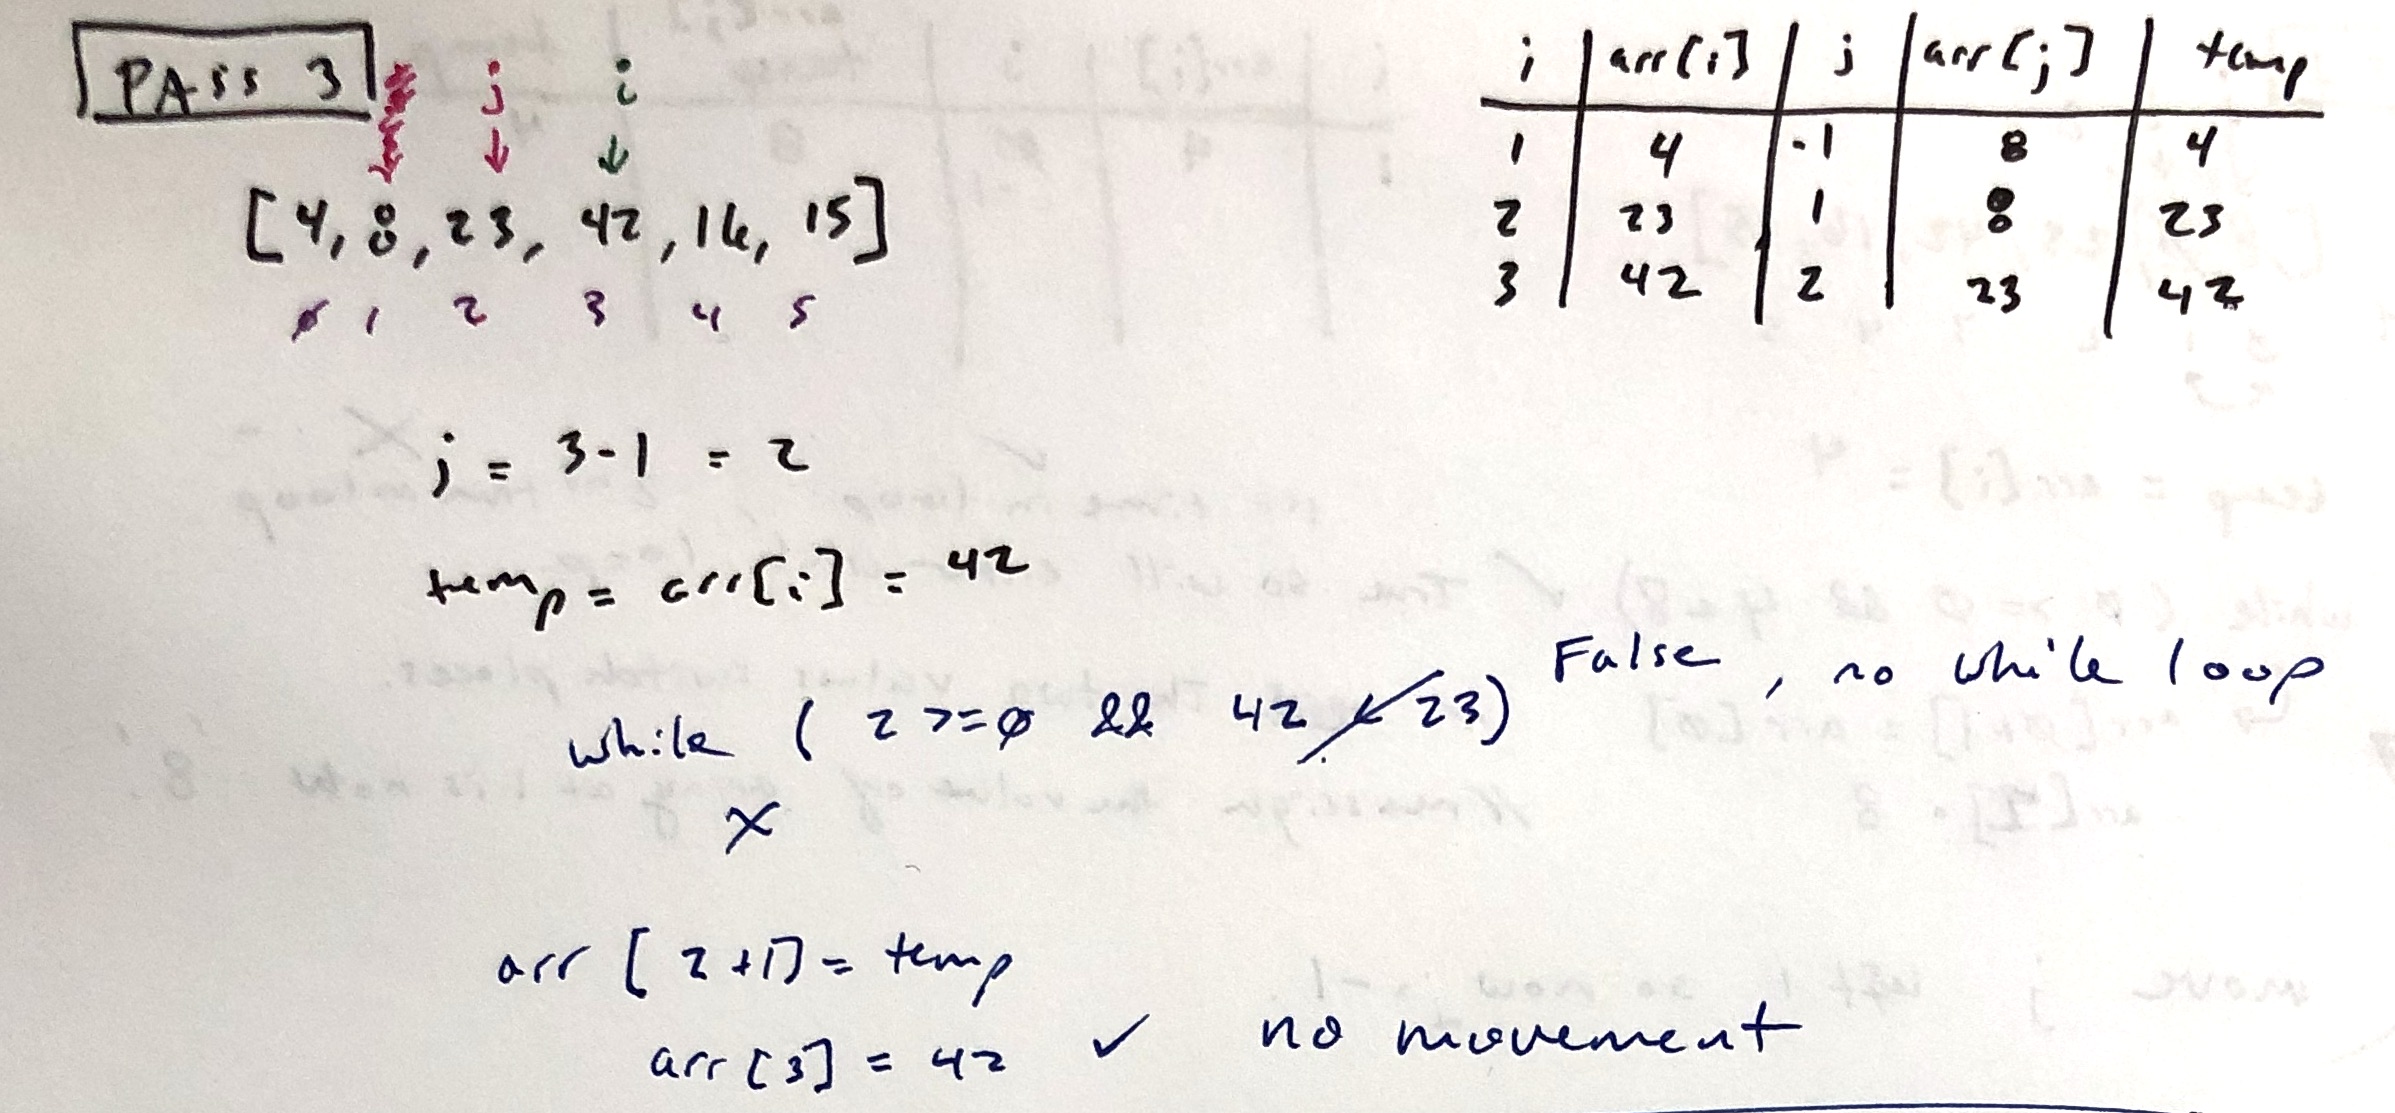 PASS 3 j i
[4, 8, 23, 42, 16, 15]
0 1 2 3 4 5
i arr[i] j arr[j] temp
1 4 -1 8 4
2 23 1 8 23
3 42 2 23 42
j = 3-1 = 2
temp = arr[i] = 42
while ( 2 >= 0 && 42 < 23) False, no while loop
X
arr [2+1] = temp
arr [3] = 42 ✓ no movement